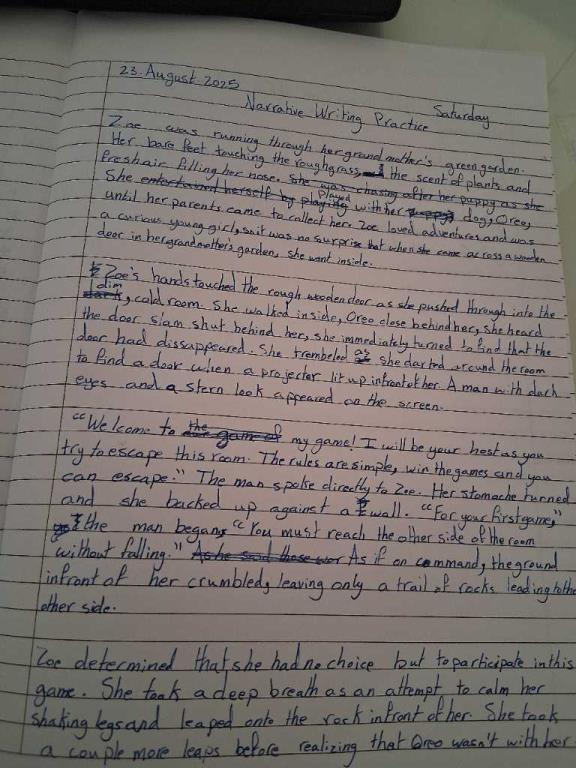 23. August 2025
Saturday
Narrative Writing Practice
Zoe was running through her grand mother's green garden.
Her bare feet touching the rough grass, the scent of plants and
fresh air filling her nose. She was chasing after her puppy as she
She entertained herself by playing played with her puppy dog, Oreo,
until her parents came to collect her. Zoe loved adventures and was
a curious young girl, so it was no surprise that when she came across a wooden
door in her grandmother's garden, she went inside.
Zoe's hands touched the rough wooden door as she pushed through into the
dark dim, cold room. She walked inside, Oreo close behind her, she heard
the door slam shut behind her, she immediately turned to find that the
door had dissappeared. She trembeled as she darted around the room
to find a door when a projector lit up infront of her. A man with dark
eyes and a stern look appeared on the screen.
"Welcome to the game of my game! I will be your host as you
try to escape this room. The rules are simple, win the games and you
can escape." The man spoke directly to Zoe. Her stomache turned
and she backed up against a wall. "For your first game,"
the man began, "You must reach the other side of the room
without falling." As he said those wor As if on command, the ground
infront of her crumbled, leaving only a trail of rocks leading to the
other side.
Zoe determined that she had no choice but to participate in this
game. She took a deep breath as an attempt to calm her
shaking legs and leaped onto the rock infront of her. She took
a couple more leaps before realizing that Oreo wasn't with her.